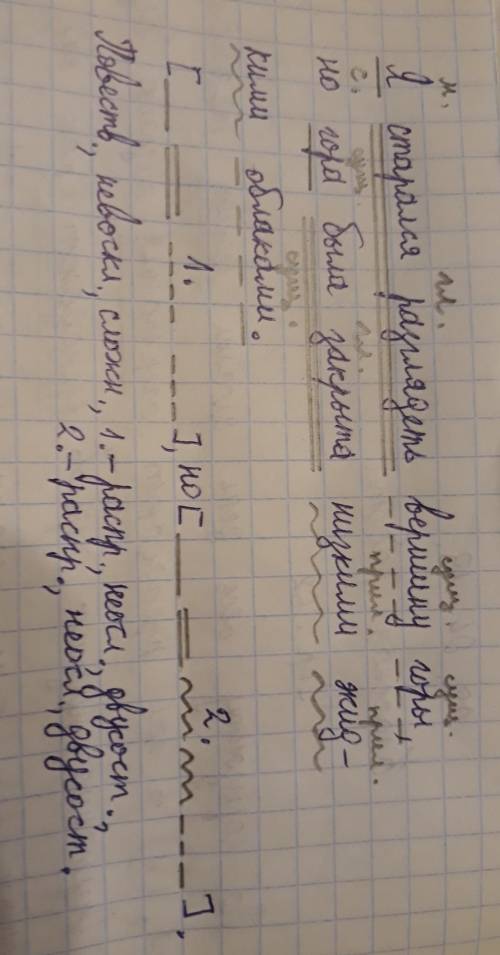 м. гл. сущ. сущ.
Я старался разглядеть вершину горы
с. сущ. гл. прил. прил.
но гора была закрыта низкими жид-
сущ.
кими облаками.
1. 2.
[ ], но [ ],
Повеств., невоскл., сложн., 1.-распр., неосл., двусост.,
2.-распр., неосл., двусост.